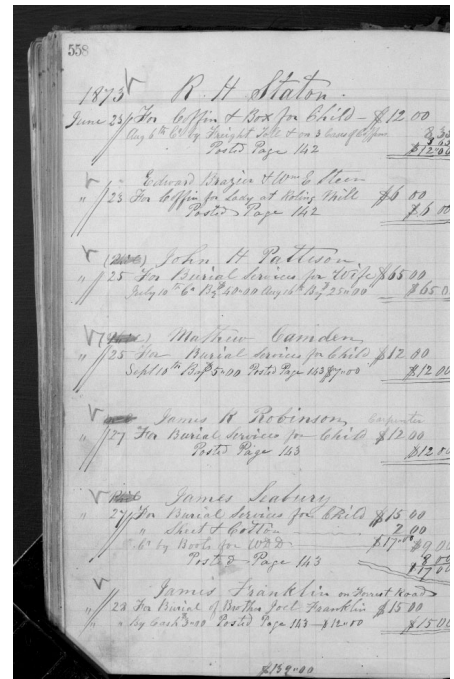 558
1873 R. H. Staton.
June 23 For Coffin & Box for Child — $12 00
Aug 6th Cr by Freight & on 3 Cases of Coffins 8.35
Posted Page 142 $12.00
Edward Brazier & Wm E
" 23 For Coffin for Lady at Roling Mill $6 00
Posted Page 142 $6 00
John H Pattison
" 25 For Burial Services for Wife $65 00
July 10th Cr By $40=00 Aug 16th By $25=00 $65 00
Mathew Camden
" 25 For Burial Services for Child $12 00
Sept 10th By $5=00 Posted Page 143 $7=00 $12 00
James R Robinson, Carpenter
" 27 For Burial Services for Child $12 00
Posted Page 143 $12.00
James Seabury
" 27 For Burial Services for Child $15 00
" Sheet & Cotton 2 00
Cr by Boots for $17.00 $9 00
Posted Page 143 8 00
$17 00
James Franklin on Forrest Road
" 28 For Burial of Brother Joel Franklin $15 00
" " By Cash 3=00 Posted Page 143 — $12=00 $15 00
$139=00